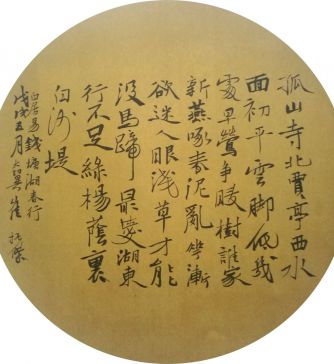 孤山寺北賈亭西水
面初平雲脚低幾
處早鶯爭暖樹誰家
新燕啄春泥亂花漸
欲迷人眼淺草才能
没馬蹄最愛湖東
行不足綠楊蔭裏
白沙堤
白居易錢塘湖春行
戊戌五月 大翼 崔